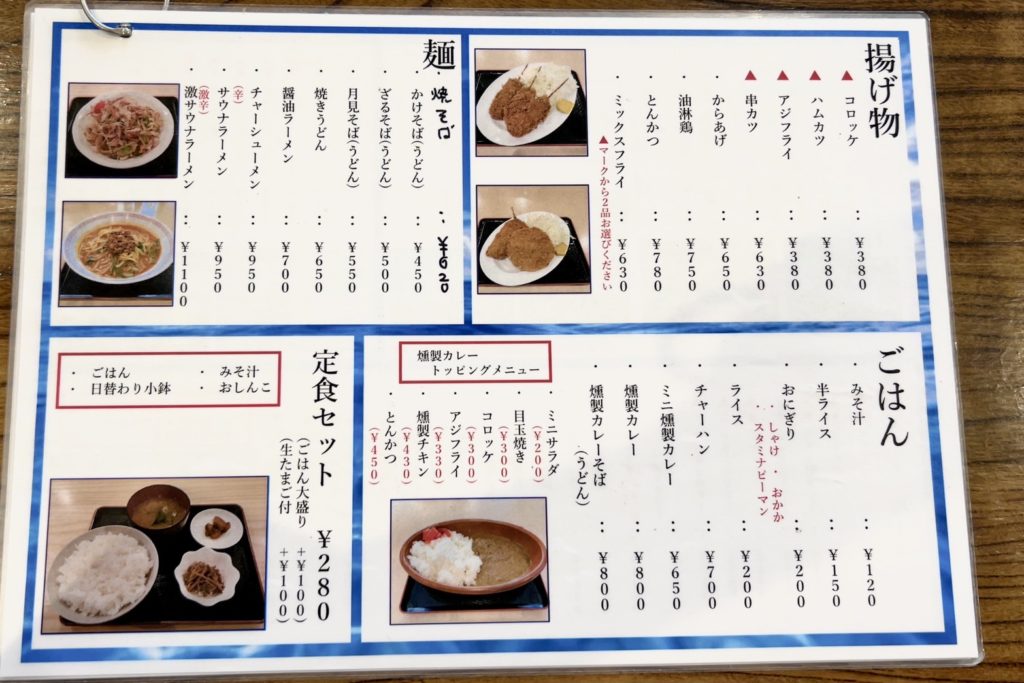 揚げ物
▲ コロッケ : ¥380
▲ ハムカツ : ¥380
▲ アジフライ : ¥380
▲ 串カツ : ¥630
・からあげ : ¥650
・油淋鶏 : ¥750
・とんかつ : ¥780
・ミックスフライ : ¥630
▲マークから2品お選びください
麺
・焼そば : ¥620
・かけそば(うどん) : ¥450
・ざるそば(うどん) : ¥500
・月見そば(うどん) : ¥550
・焼きうどん : ¥650
・醤油ラーメン : ¥700
・チャーシューメン : ¥950
・サウナラーメン : ¥950
(辛)
・激サウナラーメン : ¥1100
(激辛)
ごはん
・みそ汁 : ¥120
・半ライス : ¥150
・おにぎり : ¥200
・しゃけ ・おかか
・スタミナピーマン
・ライス : ¥200
・チャーハン : ¥700
・ミニ燻製カレー : ¥650
・燻製カレー : ¥800
・燻製カレーそば : ¥800
(うどん)
燻製カレー
トッピングメニュー
・ミニサラダ
(¥200)
・目玉焼き
(¥300)
・コロッケ
(¥300)
・アジフライ
(¥330)
・燻製チキン
(¥430)
・とんかつ
(¥450)
定食セット ¥280
(ごはん大盛り +¥100)
(生たまご付 +¥100)
・ごはん ・みそ汁
・日替わり小鉢 ・おしんこ